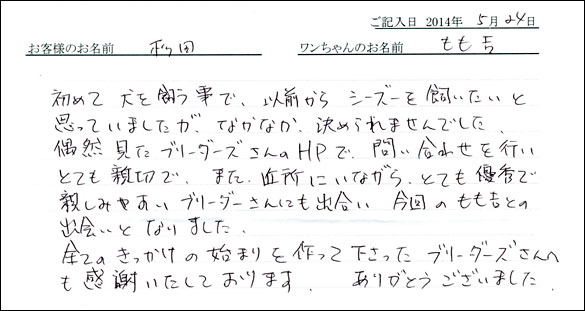 ご記入日 2014年 5月24日
お客様のお名前 杉田 ワンちゃんのお名前 もも吉
初めて 犬を飼う事で、以前から シーズーを飼いたいと
思っていましたが、なかなか、決められませんでした。
偶然見たブリーダーズさんのHPで、問い合わせを行い
とても親切で、また、近所にいながら、とても優秀で
親しみやすい ブリーダーさんにも出会い 今回のもも吉との
出会いとなりました。
全てのきっかけの始まりを作って下さった ブリーダーズさんへ
も感謝いたしております。 ありがとうございました。